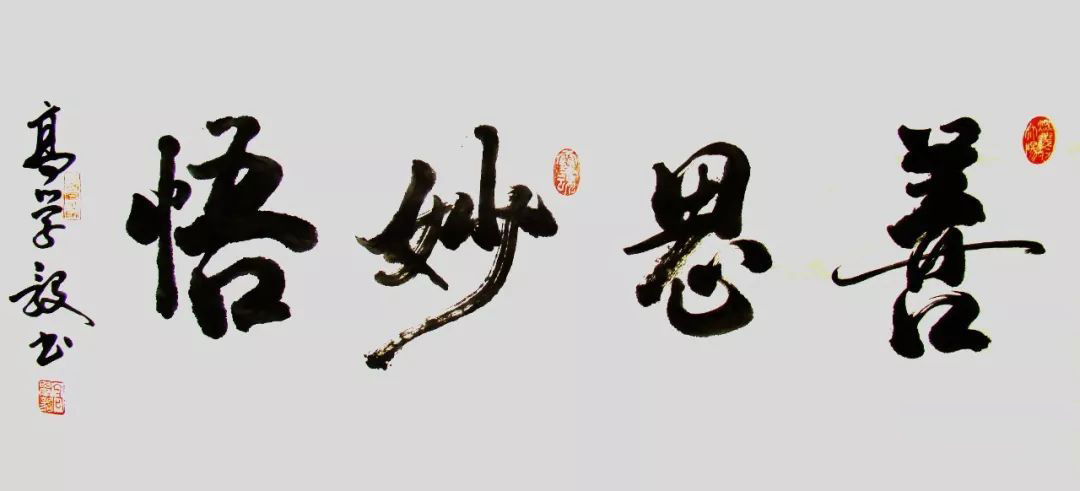 善思妙悟
高学敏书